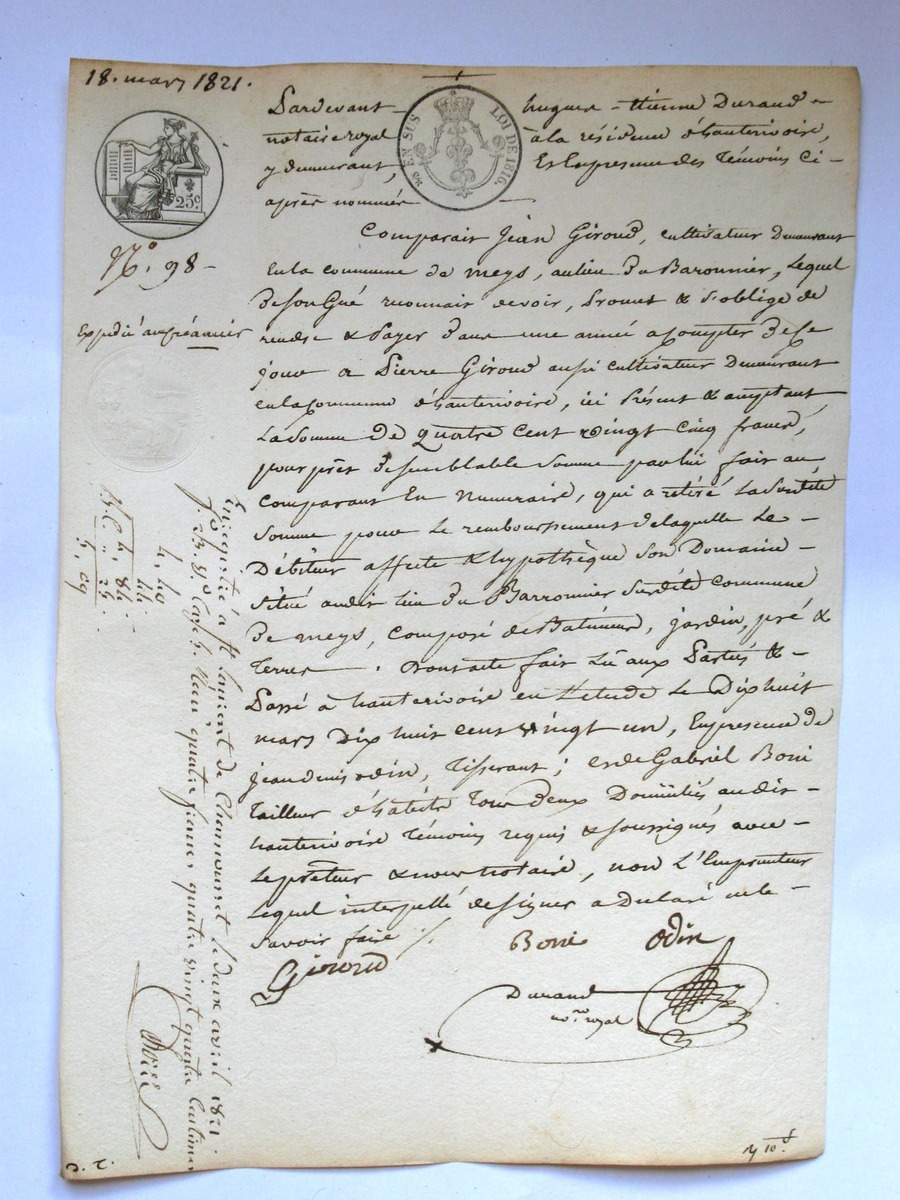 18. mars 1821.
Pardevant hugues-Etienne Durand
notaire royal à la résidence d'hauterivoire,
y demeurant, Et Enpresence des Témoins Ci-
après nommés
EN SUS LOI DE 1816.
25c
N.° 98
Expédié au créancier
Comparait Jean Giroud, cultivateur Demeurant
En la commune de meys, au lieu du Baronnier, Lequel
de son Gré reconnait devoir, Promet & s'oblige de
rendre & Payer Dans une année a Compter de Ce
jour a Pierre Giroud aussi Cultivateur Demeurant
en la Commune d'hauterivoire, ici Présent & acceptant
La Somme De quatre Cent vingt Cinq francs,
pour prêt de semblable Somme par lui fait au
Comparant En Numeraire, qui a retiré La Susdite
Somme pour Le remboursement de laquelle Le
Débiteur affecte & hypothèque Son Domaine
Situé audit Lieu du Barronnier Susdite Commune
De meys, Composé de Batiments, jardin, pré &
Terres. Dont acte fait Lu aux Parties &
Passé à hauterivoire en l'Etude Le Dix huit
mars Dix huit cent vingt un, En presence de
jean denis odin, Tisserant; et de Gabriel Boni
Tailleur d'habits Tous deux Domiciliés audit
hauterivoire Témoins requis & soussignés avec
Le prêteur & nous notaire, non L'Emprunteur
Lequel interpellé de signer a Déclaré ne le
Savoir faire ./.
Giroud Boni Odin
Durand
no.re royal
Enregistré à St Laurent de Chamousset le deux avril 1821.
quatre francs quatre vingt quatre Centimes